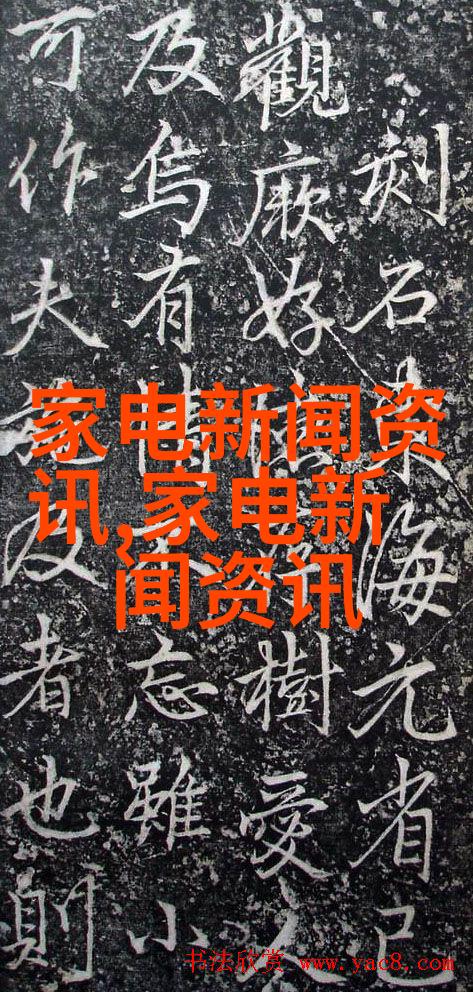 刻石東海元省己
觀厥好樹愛人
及烏有情忘雖小
可作夫及者也則
家电新闻资
讯,家电新
闻资讯
书法欣赏 www.yac8.com